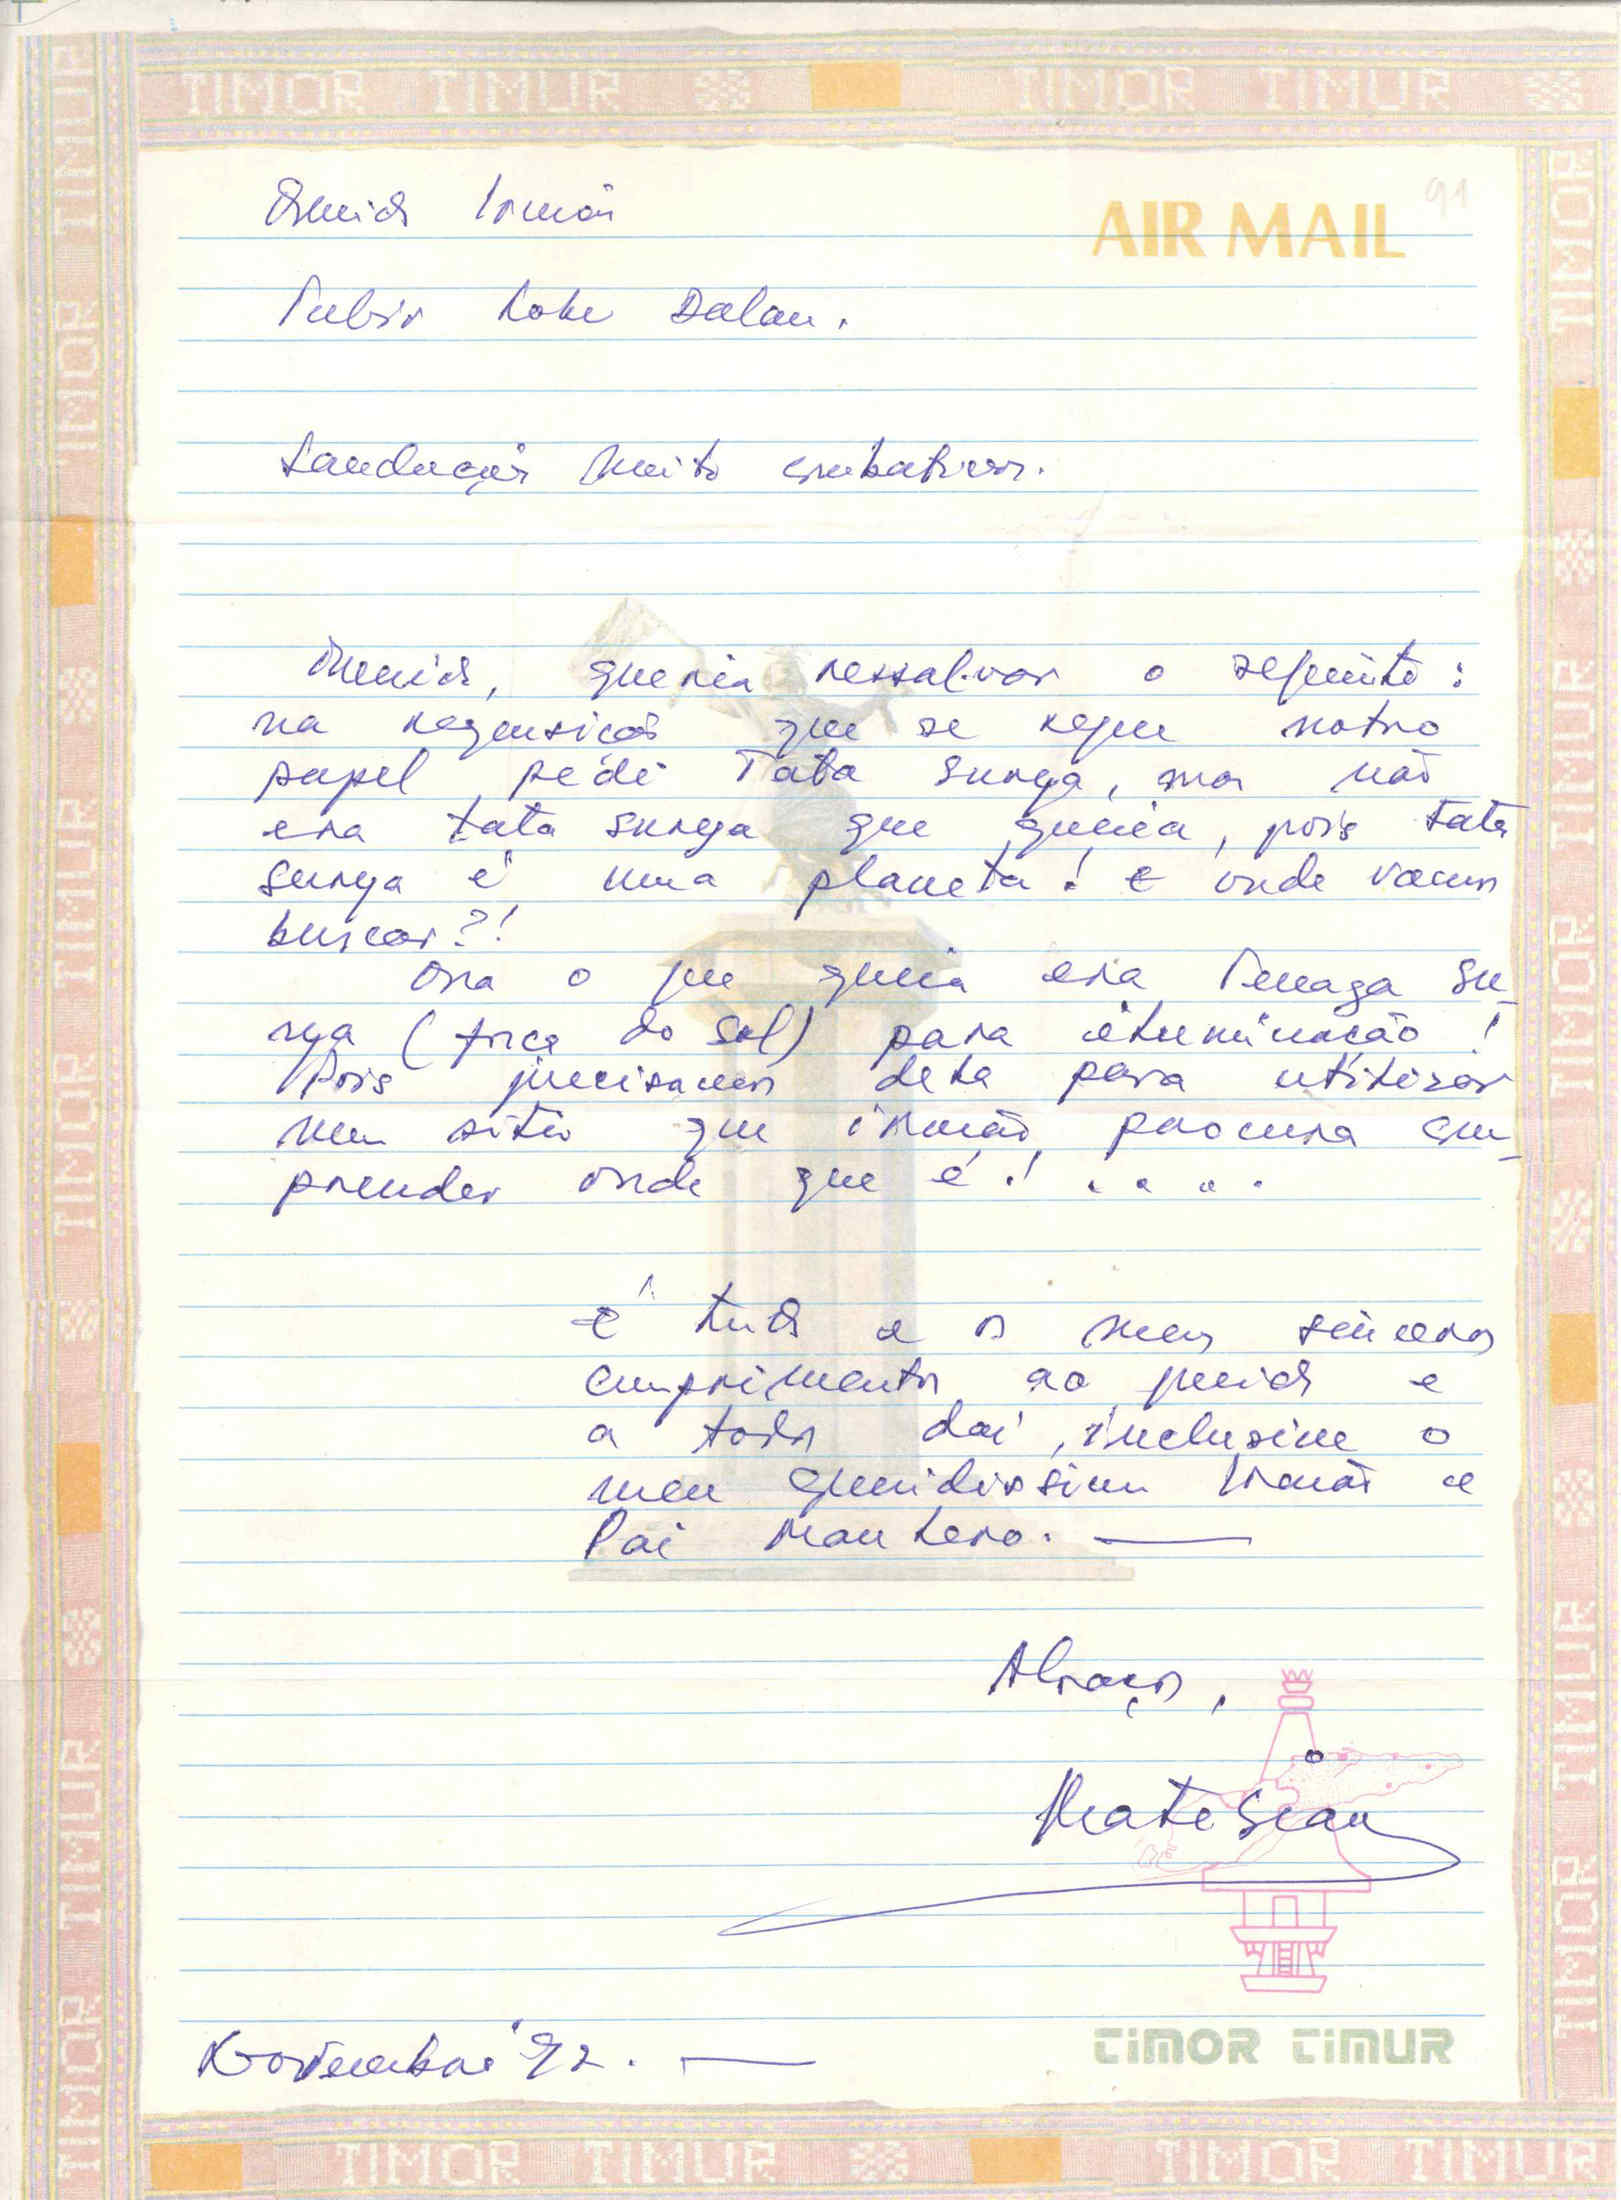 TIMOR TIMUR TIMOR TIMUR
AIR MAIL
91
Querido Irmão
Sabir Loke Dalan.
Saudações muito combativas.
Querido, queria ressalvar o seguinte:
na requisição que se segue noutro
papel pedi Tata Surya, mas não
era tata surya que queria, pois tata
surya é uma planeta! E onde vamos
buscar?!
Ora o que queria era Tenaga Su-
rya (força do sol) para iluminação!
Pois precisamos dela para utilizar
num sitio que irmão, procura com-
preender onde que é! . . . .
É tudo e os meus sinceros
cumprimentos ao querido e
a todos daí, inclusive o
meu queridissimo Irmão e
Pai Mau Lero.
Abraços,
Mate Sian
Novembro '92.
TIMOR TIMUR
TIMOR TIMUR TIMOR TIMUR